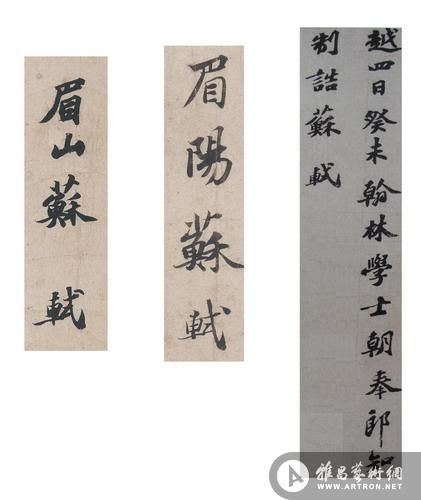 眉山蘇軾
眉陽蘇軾
越四日癸未翰林學士朝奉郎知
制誥蘇軾
雅昌藝術網
WWW.ARTRON.NET